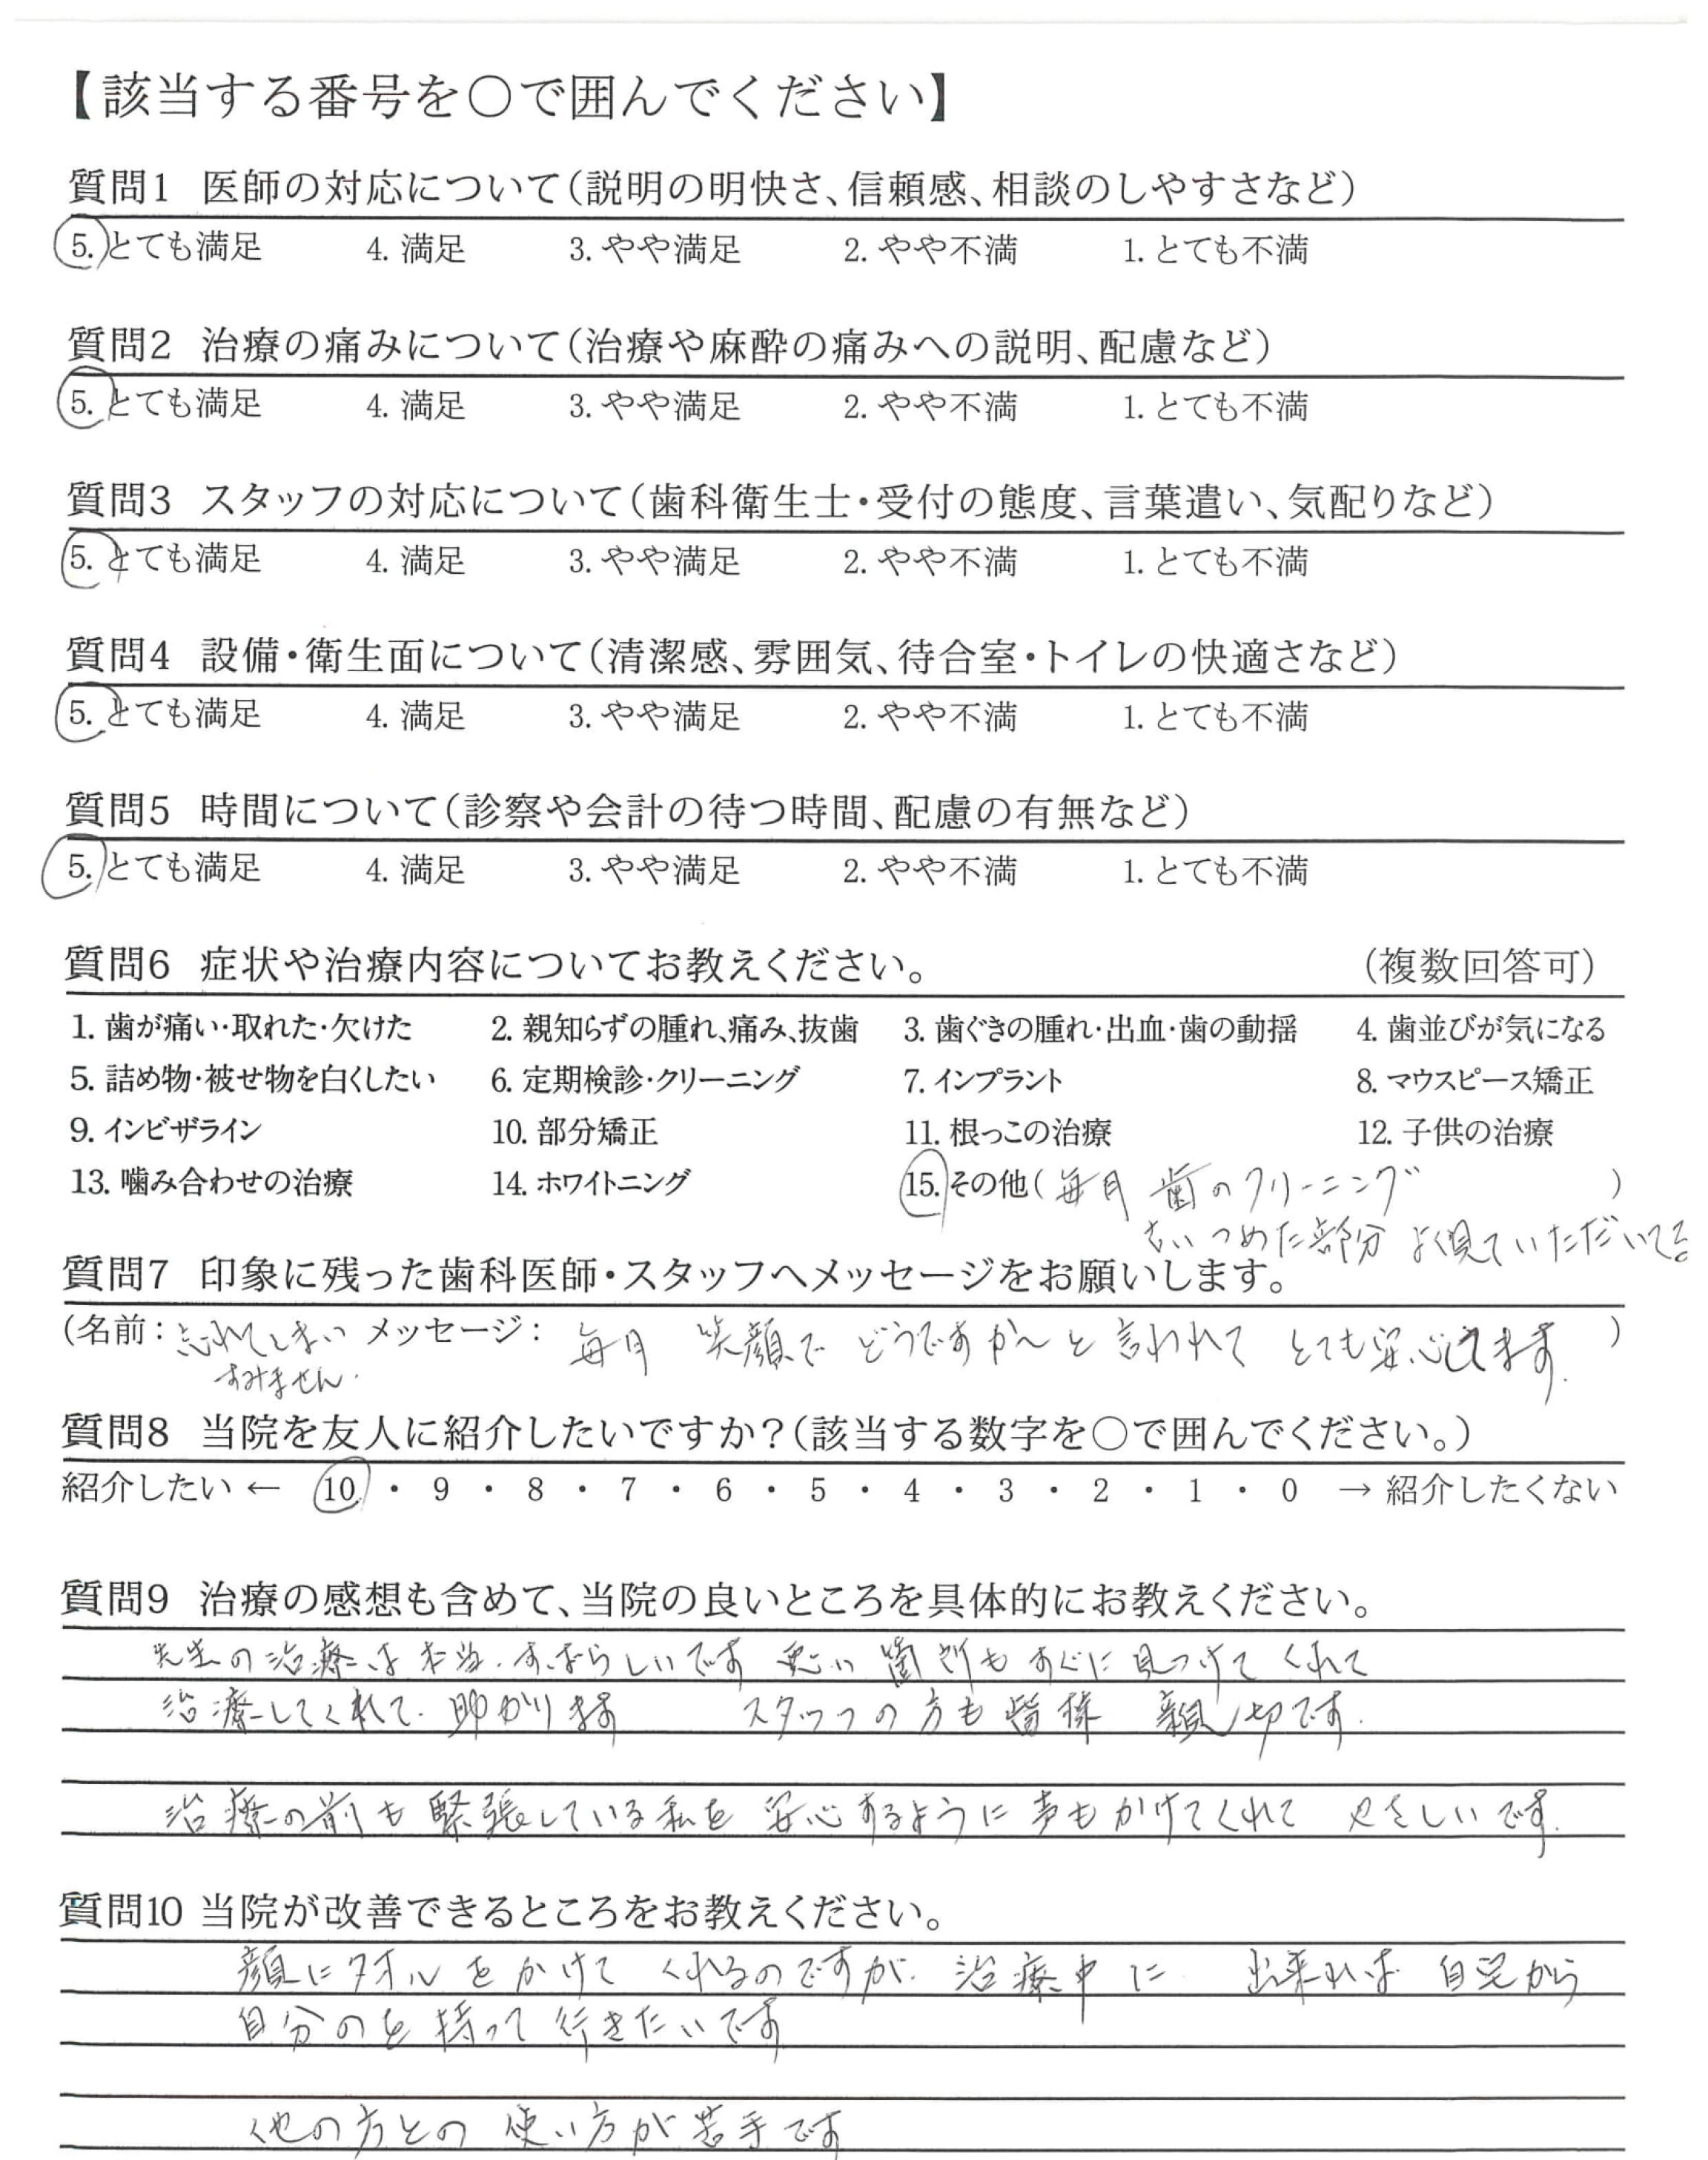 【該当する番号を○で囲んでください】
質問1 医師の対応について(説明の明快さ、信頼感、相談のしやすさなど)
5. とても満足 4. 満足 3. やや満足 2. やや不満 1. とても不満
質問2 治療の痛みについて(治療や麻酔の痛みへの説明、配慮など)
5. とても満足 4. 満足 3. やや満足 2. やや不満 1. とても不満
質問3 スタッフの対応について(歯科衛生士・受付の態度、言葉遣い、気配りなど)
5. とても満足 4. 満足 3. やや満足 2. やや不満 1. とても不満
質問4 設備・衛生面について(清潔感、雰囲気、待合室・トイレの快適さなど)
5. とても満足 4. 満足 3. やや満足 2. やや不満 1. とても不満
質問5 時間について(診察や会計の待つ時間、配慮の有無など)
5. とても満足 4. 満足 3. やや満足 2. やや不満 1. とても不満
質問6 症状や治療内容についてお教えください。 (複数回答可)
1. 歯が痛い・取れた・欠けた 2. 親知らずの腫れ、痛み、抜歯 3. 歯ぐきの腫れ・出血・歯の動揺 4. 歯並びが気になる
5. 詰め物・被せ物を白くしたい 6. 定期検診・クリーニング 7. インプラント 8. マウスピース矯正
9. インビザライン 10. 部分矯正 11. 根っこの治療 12. 子供の治療
13. 噛み合わせの治療 14. ホワイトニング 15. その他( 毎月 歯のクリーニング )
つめた部分 よく見ていただいてる
質問7 印象に残った歯科医師・スタッフへメッセージをお願いします。
(名前: 忘れてしまい メッセージ: 毎月 笑顔で どうですか〜と言われて とても安心してます. )
すみません.
質問8 当院を友人に紹介したいですか?(該当する数字を○で囲んでください。)
紹介したい ← 10 ・ 9 ・ 8 ・ 7 ・ 6 ・ 5 ・ 4 ・ 3 ・ 2 ・ 1 ・ 0 → 紹介したくない
質問9 治療の感想も含めて、当院の良いところを具体的にお教えください。
先生の治療は本当.すばらしいです 悪い 箇所も すぐに見つけて くれて
治療してくれて.助かります スタッフの方も皆様 親切です.
治療の前も緊張している私を 安心するように声もかけてくれて やさしいです.
質問10 当院が改善できるところをお教えください。
顔にタオルをかけて くれるのですが.治療中に 出来れば 自宅から
自分のを持って行きたいです
他の方との 使い方が苦手です